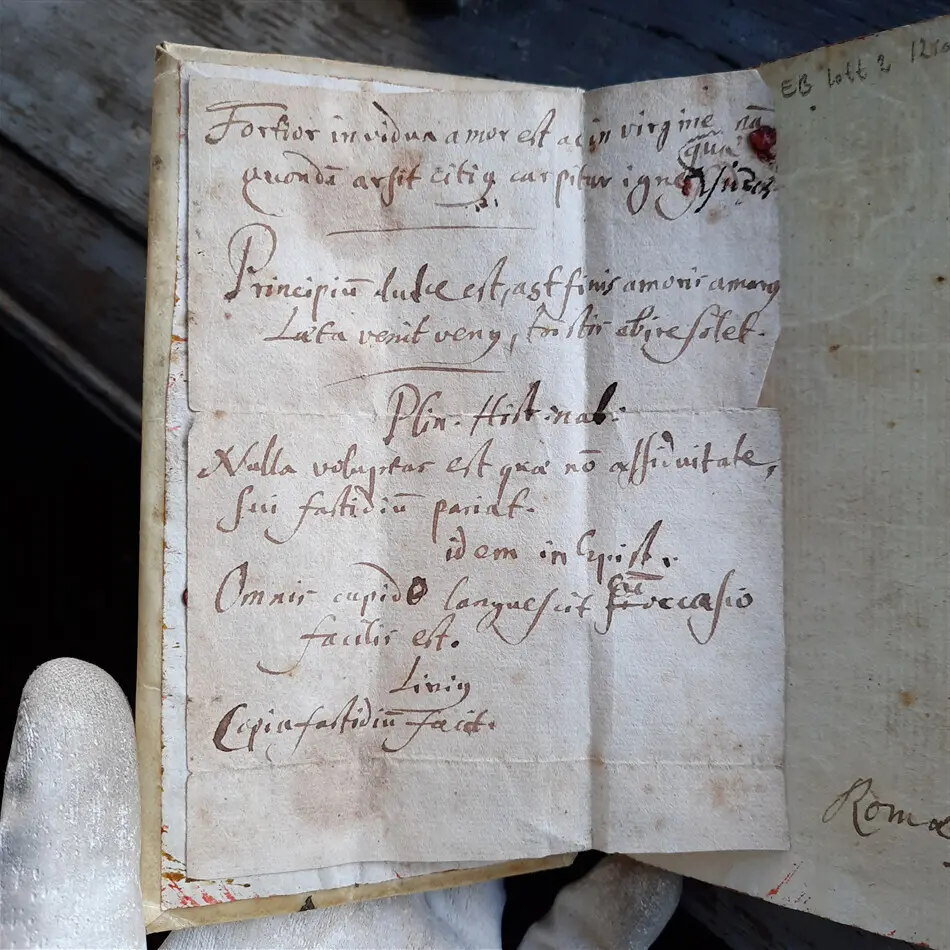 EB lott 2
Fortior in vidua amor est ac in virgine nā
qua
quondā arsit citiꝯ carpitur igne
Principiū dulce est, ast finis amoris amarꝯ
Læta venit venꝯ, tristis abire solet.
Plin. Hist. nat.
Nulla voluptas est quæ nō assiduitate,
sui fastidiū pariat.
idem in Epist.
Omnis cupido languescit cū occasio
facilis est.
Liviꝯ
Copia fastidiū facit.
Romæ